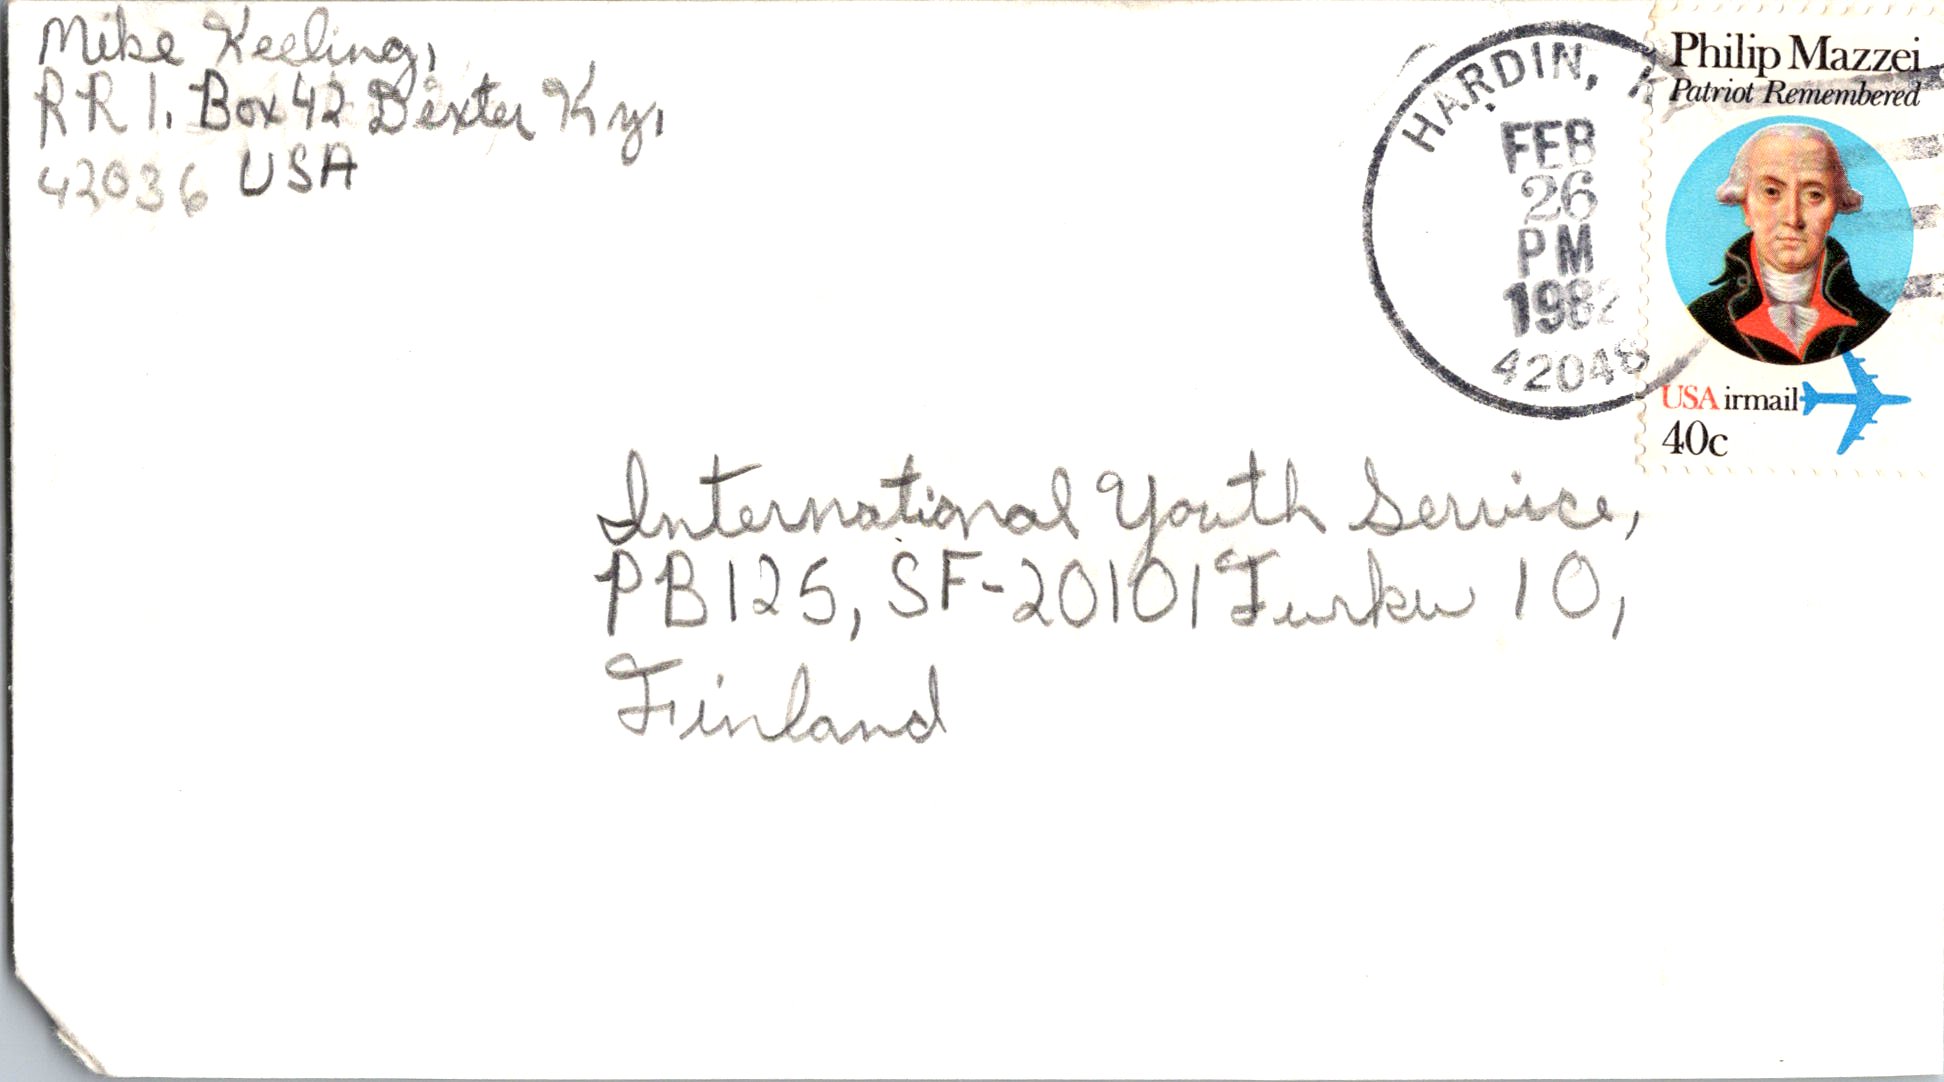 Mike Keeling,
RR 1. Box 42 Dexter Ky,
42036 USA
HARDIN, K
FEB
26
PM
1982
42048
Philip Mazzei
Patriot Remembered
USAirmail
40c
International Youth Service,
PB 125, SF-20101 Turku 10,
Finland